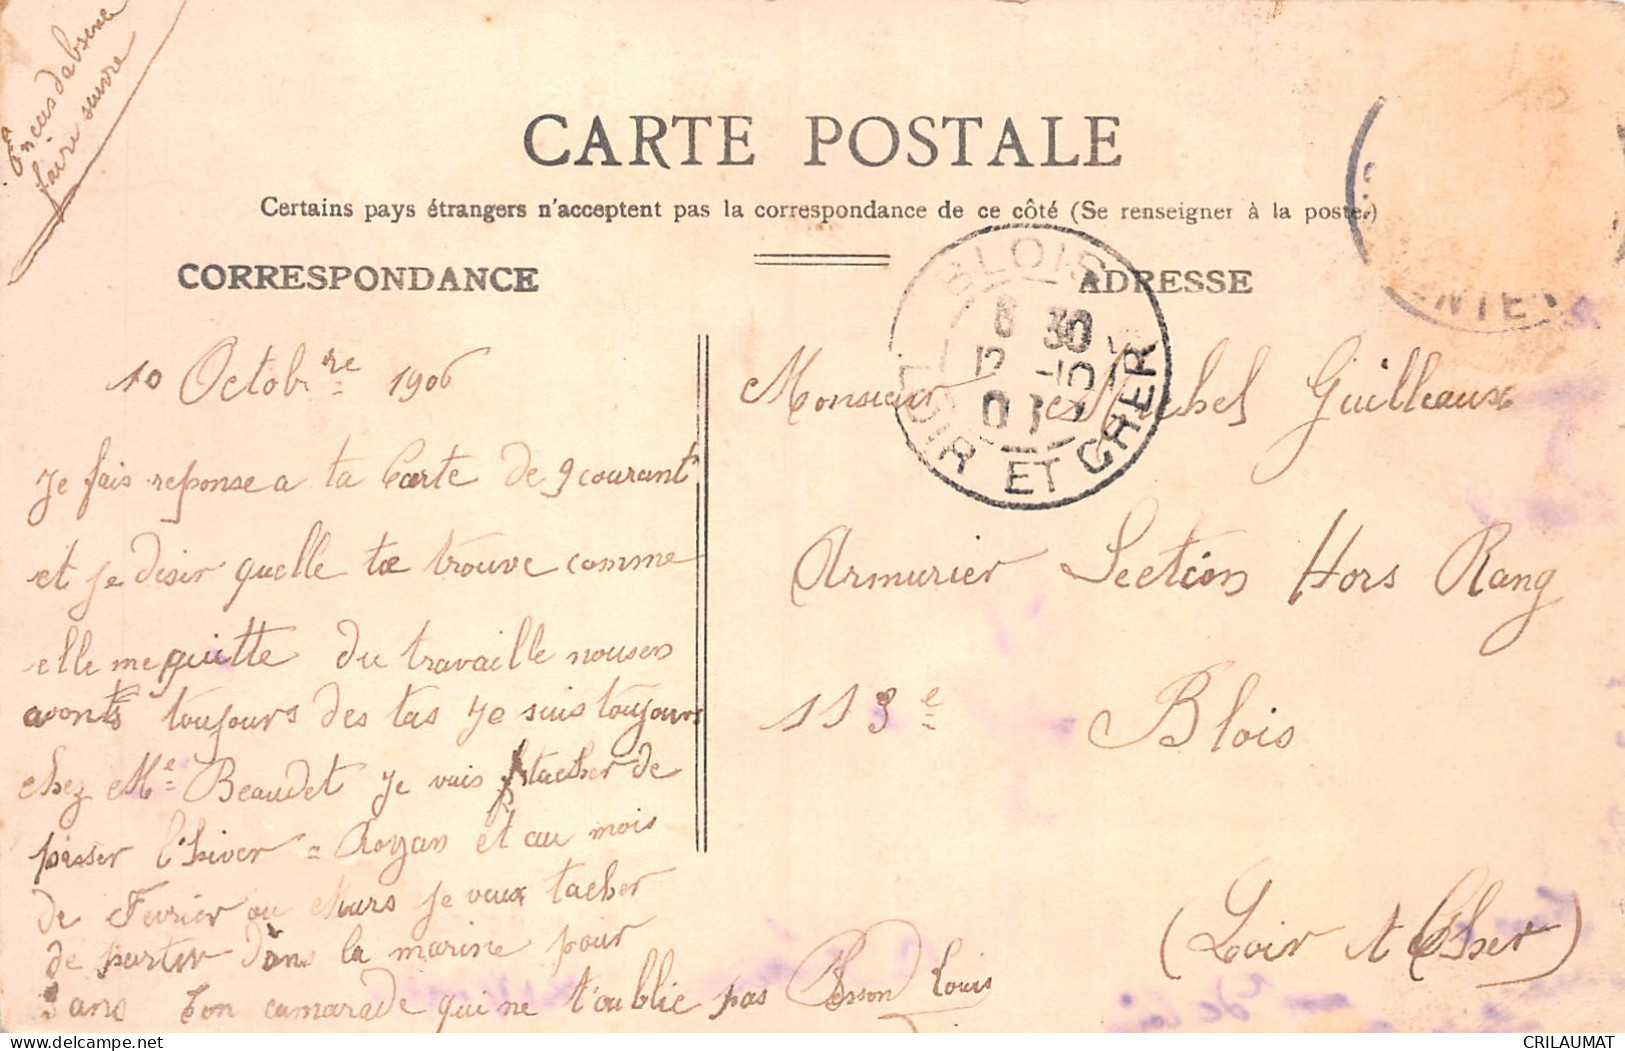 En cas d'absence
faire suivre
CARTE POSTALE
Certains pays étrangers n'acceptent pas la correspondance de ce côté (Se renseigner à la poste.)
CORRESPONDANCE
ADRESSE
BLOIS
8 30
LOIR ET CHER
10 Octobre 1906
Je fais reponse a ta Carte de 9 courant
et je desir quelle te trouve comme
elle me quitte du travaille nousen
avonts toujours des tas Je suis toujours
chez Me Beaudet Je vais tacher de
passer l'hiver a Royan et au mois
de Fevrier ou Mars Je veux tacher
de partir dans la marine pour
3 ans Ton camarade qui ne t'oublie pas Besson Louis
Monsieur Michel Guilleaux
Armurier Section Hors Rang
113e Blois
(Loir et Cher)
CRILAUMAT